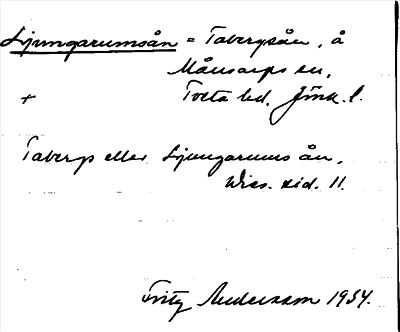 Ljungarumsån = Tabergsån, å
Månsarps sn,
+ Tveta hd. Jönk. l.
Tabergs eller Ljungarums ån,
Wies. sid. 11.
Fritz Andersson 1934.